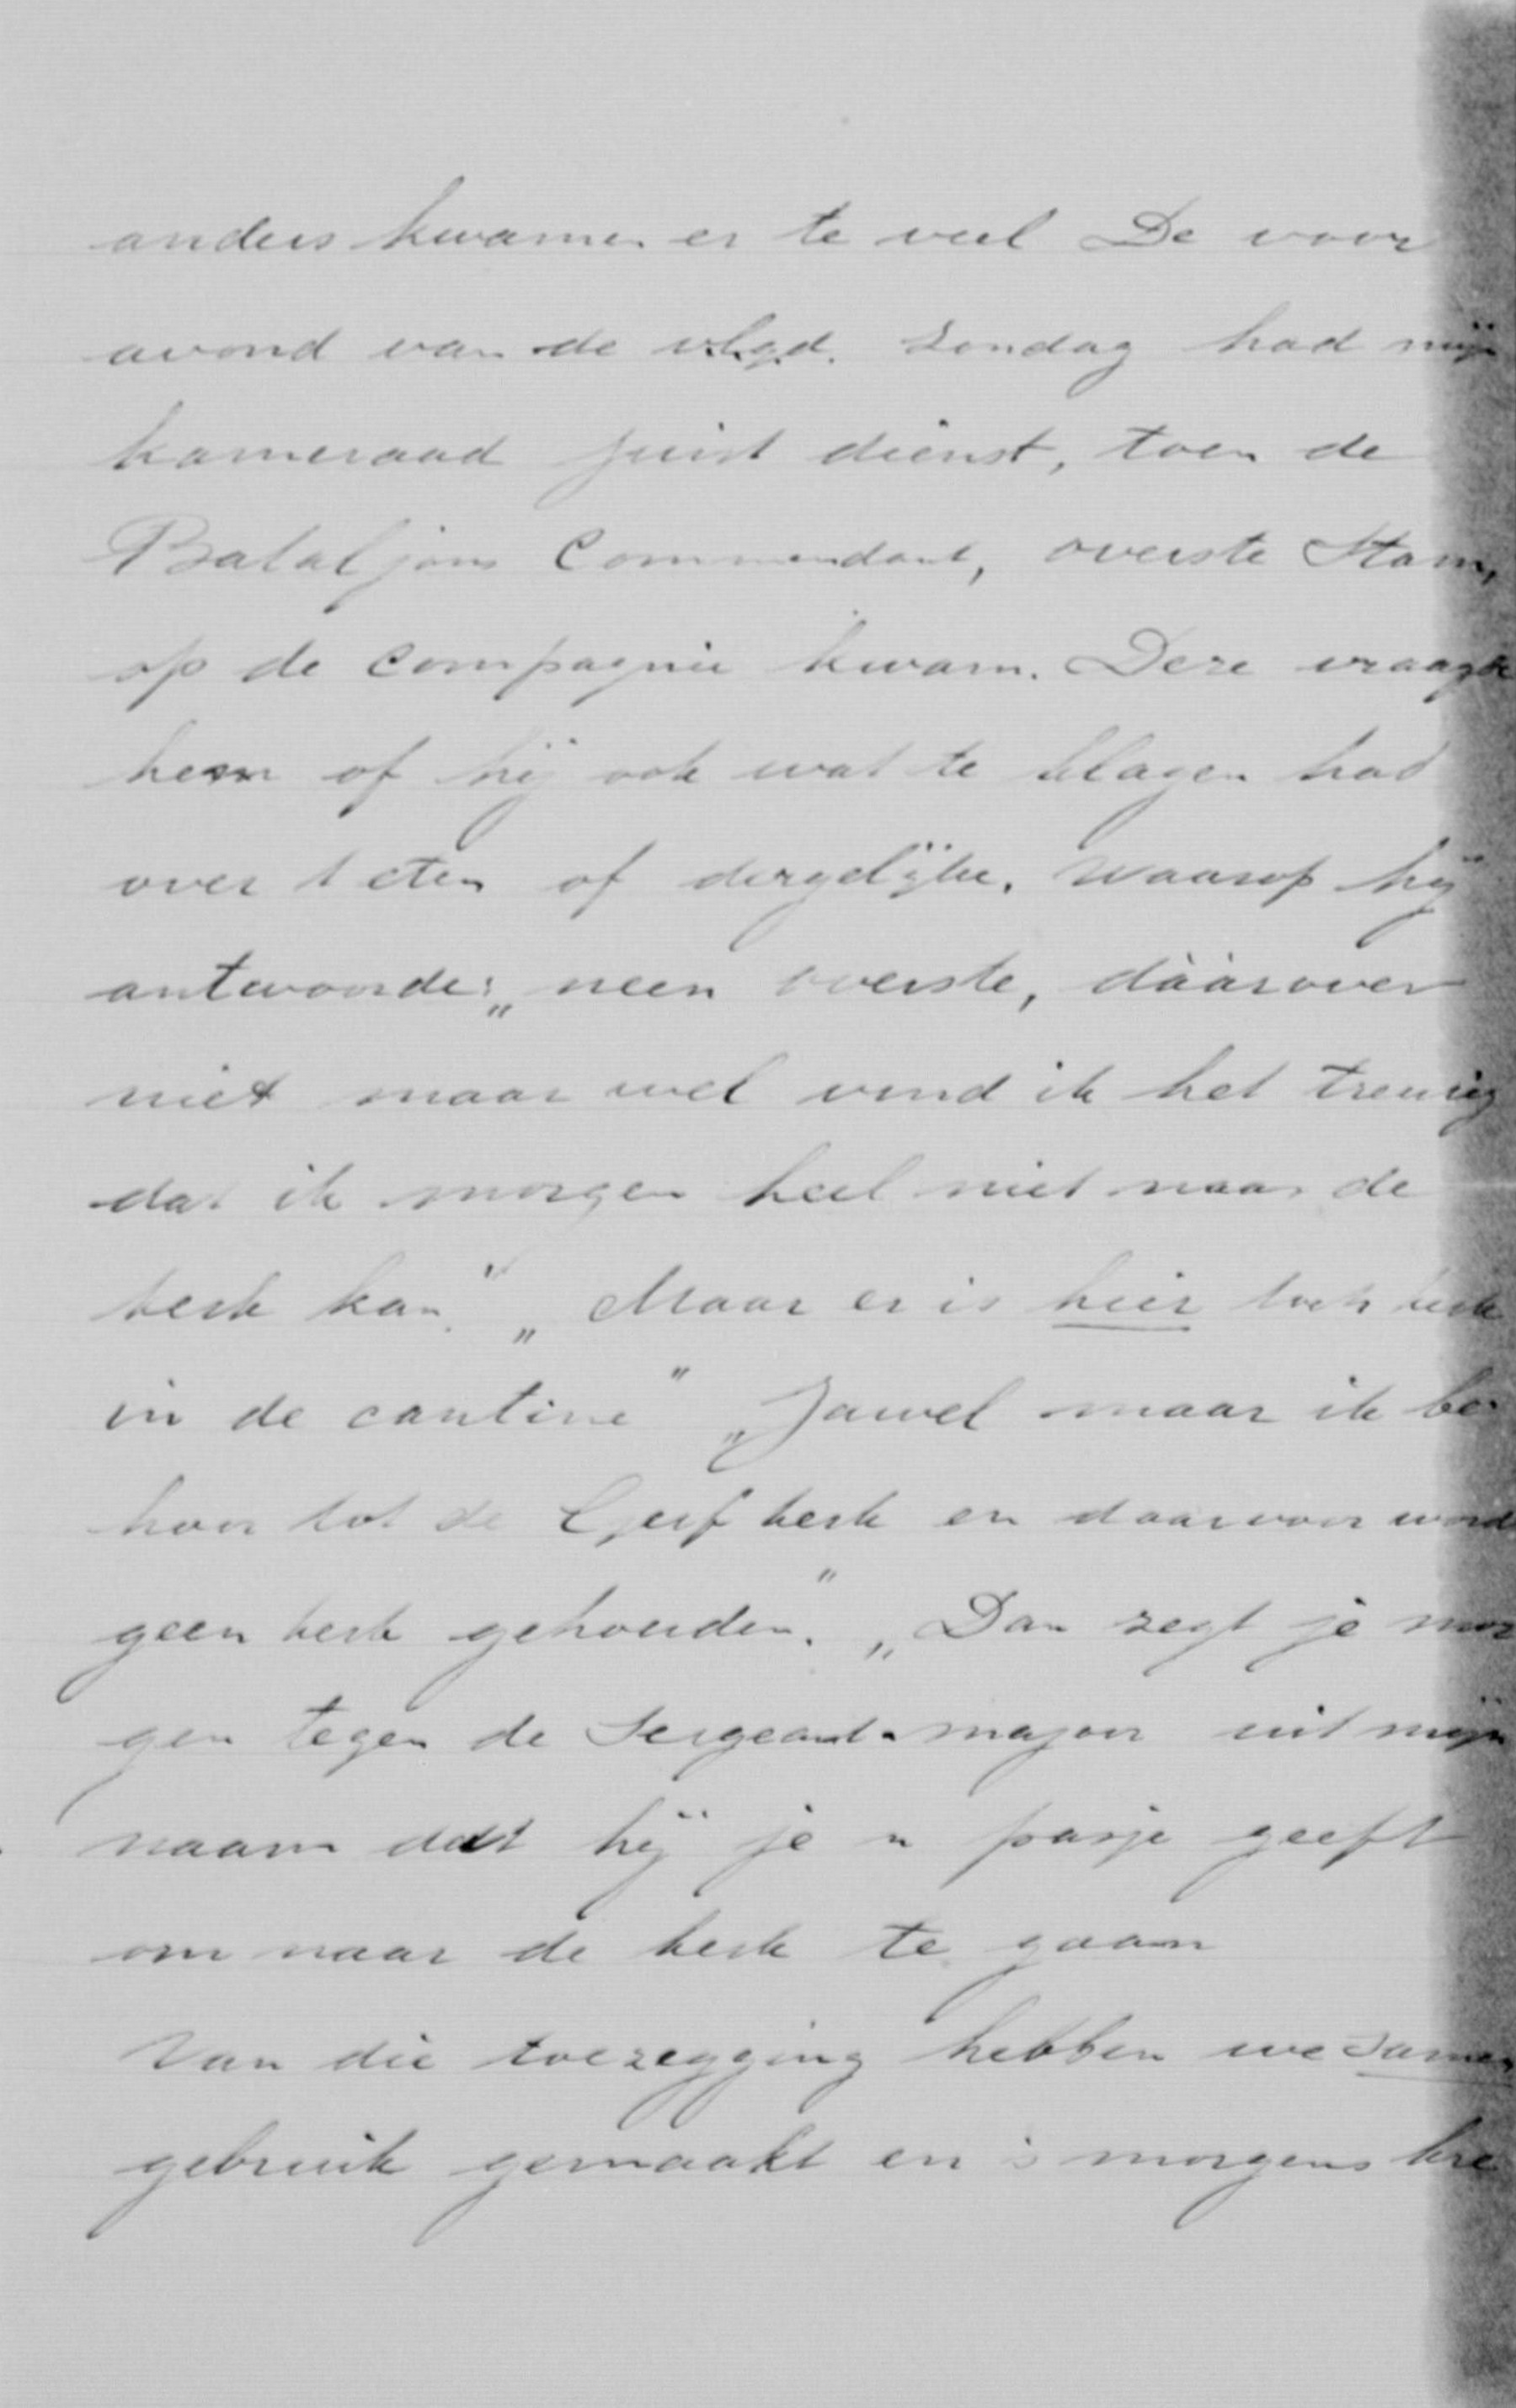 anders kwamen er te veel De voor
avond van de vlgd. Zondag had mijn
kameraad juist dienst, toen de
Bataljons Commendant, overste Stam,
op de compagnie kwam. Deze vraagde
hem of hij ook wat te klagen had
over 't eten of dergelijke. Waarop hij
antwoorde: „neen overste, dáárover
niet maar wel vind ik het treurig
dat ik morgen heel niet naar de
kerk kan." „Maar er is hier toch kerk
in de cantine" „Jawel maar ik be-
hoor tot de Geref kerk en daarvoor wordt
geen kerk gehouden." „Dan zegt je mor
gen tegen de Sergeant-majoor uit mijn
naam dat hij je n pasje geeft
om naar de kerk te gaan
Van die toezegging hebben we samen
gebruik gemaakt en 's morgens kre